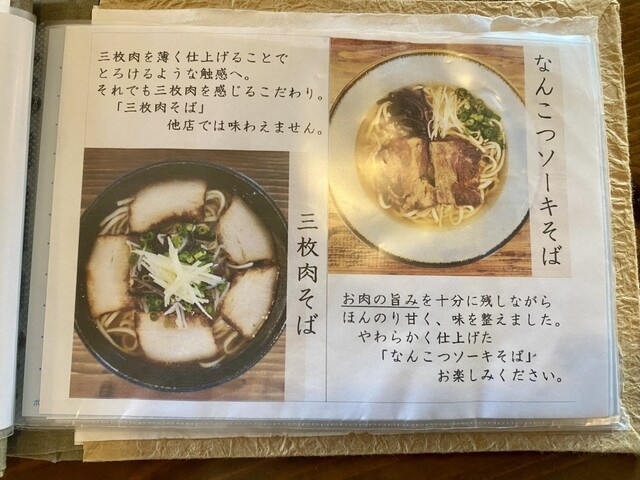 三枚肉を薄く仕上げることで
とろけるような触感へ。
それでも三枚肉を感じるこだわり。
「三枚肉そば」
他店では味わえません。
三枚肉そば
なんこつソーキそば
お肉の旨みを十分に残しながら
ほんのり甘く、味を整えました。
やわらかく仕上げた
「なんこつソーキそば」
お楽しみください。